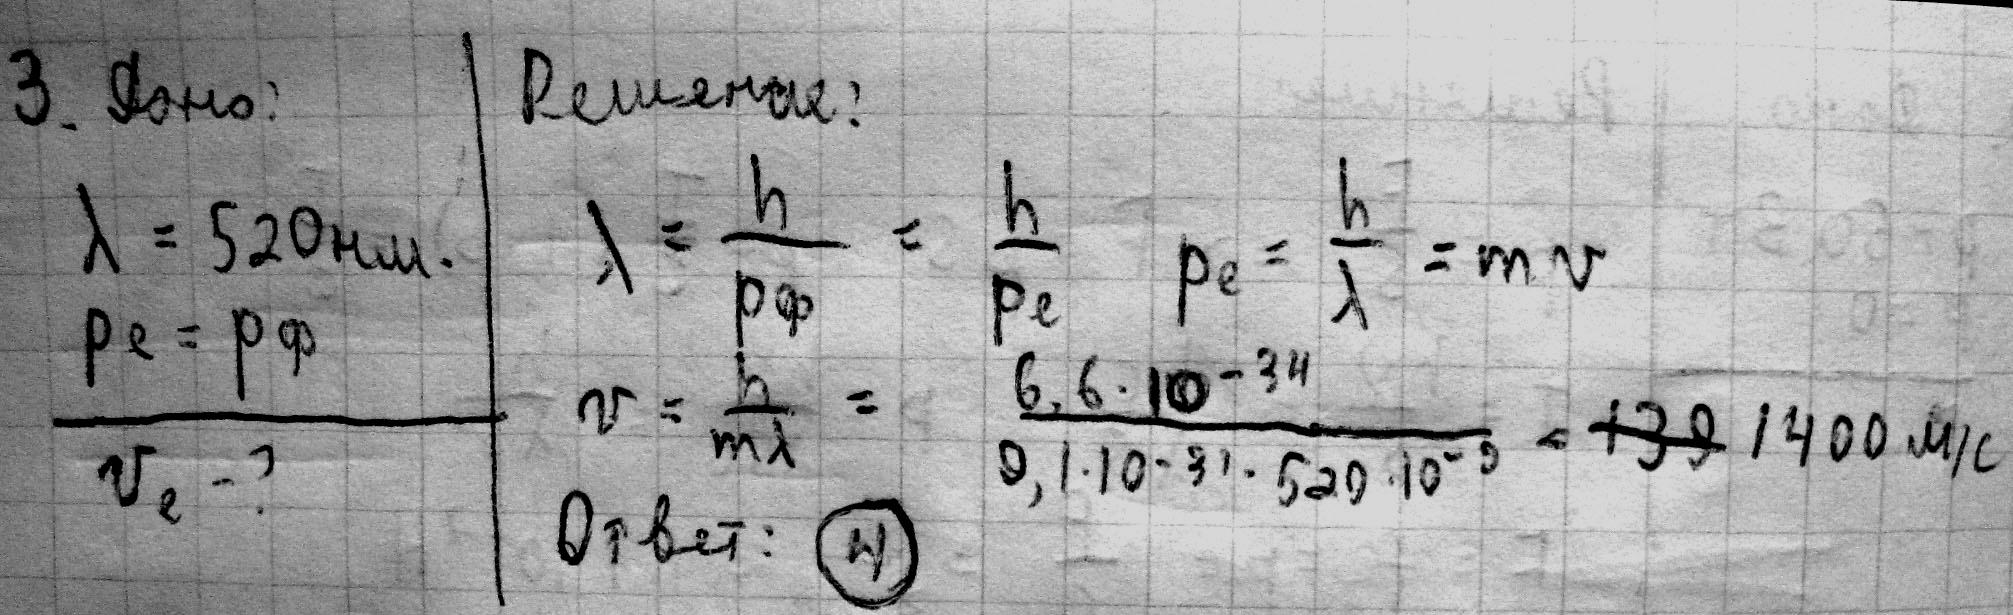 3. Дано:
λ = 520 нм.
pe = pф
ve - ?
Решение:
λ = h/pф = h/pe pe = h/λ = mv
v = h/mλ = 6,6·10^-34/9,1·10^-31·520·10^-9 = 139 1400 м/с
Ответ: 4